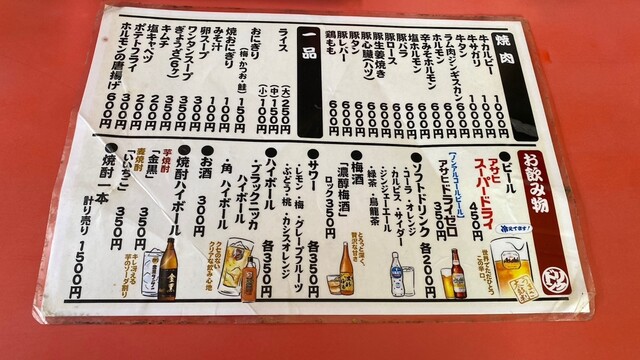 焼肉
牛カルビー 1000円
牛サガリ 1000円
牛タン 1000円
ラム肉ジンギスカン 600円
ホルモン 600円
辛みそホルモン 600円
塩ホルモン 600円
豚バラ 600円
豚ロース 600円
豚生姜焼き 600円
豚心臓(ハツ) 600円
豚タン 600円
豚レバー 600円
鶏もも 600円
一品
ライス (大)250円
(中)150円
(小)100円
おにぎり
(梅・かつお・鮭) 150円
焼おにぎり
みそ汁 100円
卵スープ 300円
ワンタンスープ
ぎょうざ(6ヶ) 350円
キムチ
塩キャベツ 200円
ポテトフライ 300円
ホルモンの唐揚げ 600円
お飲み物
●ビール
アサヒ
スーパードライ
450円
冷えてます!
世界でただひとつ
この辛口。
【ノンアルコールビール】
アサヒドライゼロ
350円
●ソフトドリンク 各200円
・コーラ・オレンジ
・カルピス・サイダー
・ジンジャーエール
・緑茶・烏龍茶
●梅酒
「濃醇梅酒」
ロック350円
とろっと深く、
贅沢な甘さ
●サワー 各350円
・レモン・梅・グレープフルーツ
・ぶどう・桃・カシスオレンジ
●ハイボール 各350円
・ブラックニッカ
ハイボール
・角 ハイボール
クセのない
クリアな飲み心地
●お酒 300円
●焼酎ハイボール 350円
芋焼酎
「金黒」 350円
麦焼酎
「いいちこ」 350円
キレ冴える
芋のソーダ割り
●焼酎一本
計り売り 1500円